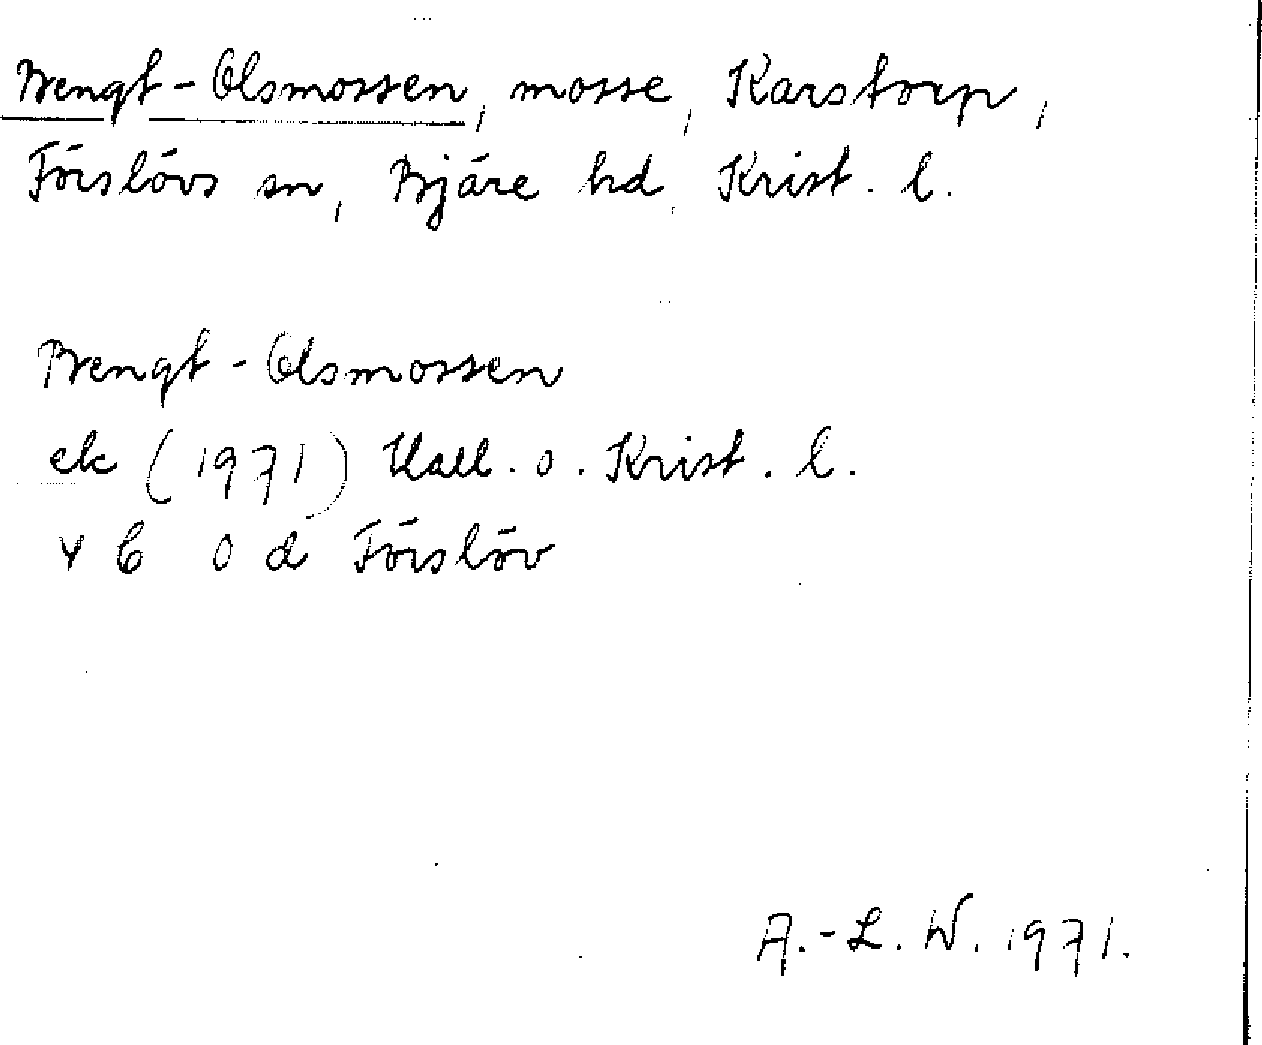 Bengt-Olsmossen, mosse, Karstorp,
Förslövs sn, Bjäre hd, Krist. l.
Bengt-Olsmossen
ek (1971) Hall. o. Krist. l.
4 C 0 d Förslöv
A.-L. W. 1971.